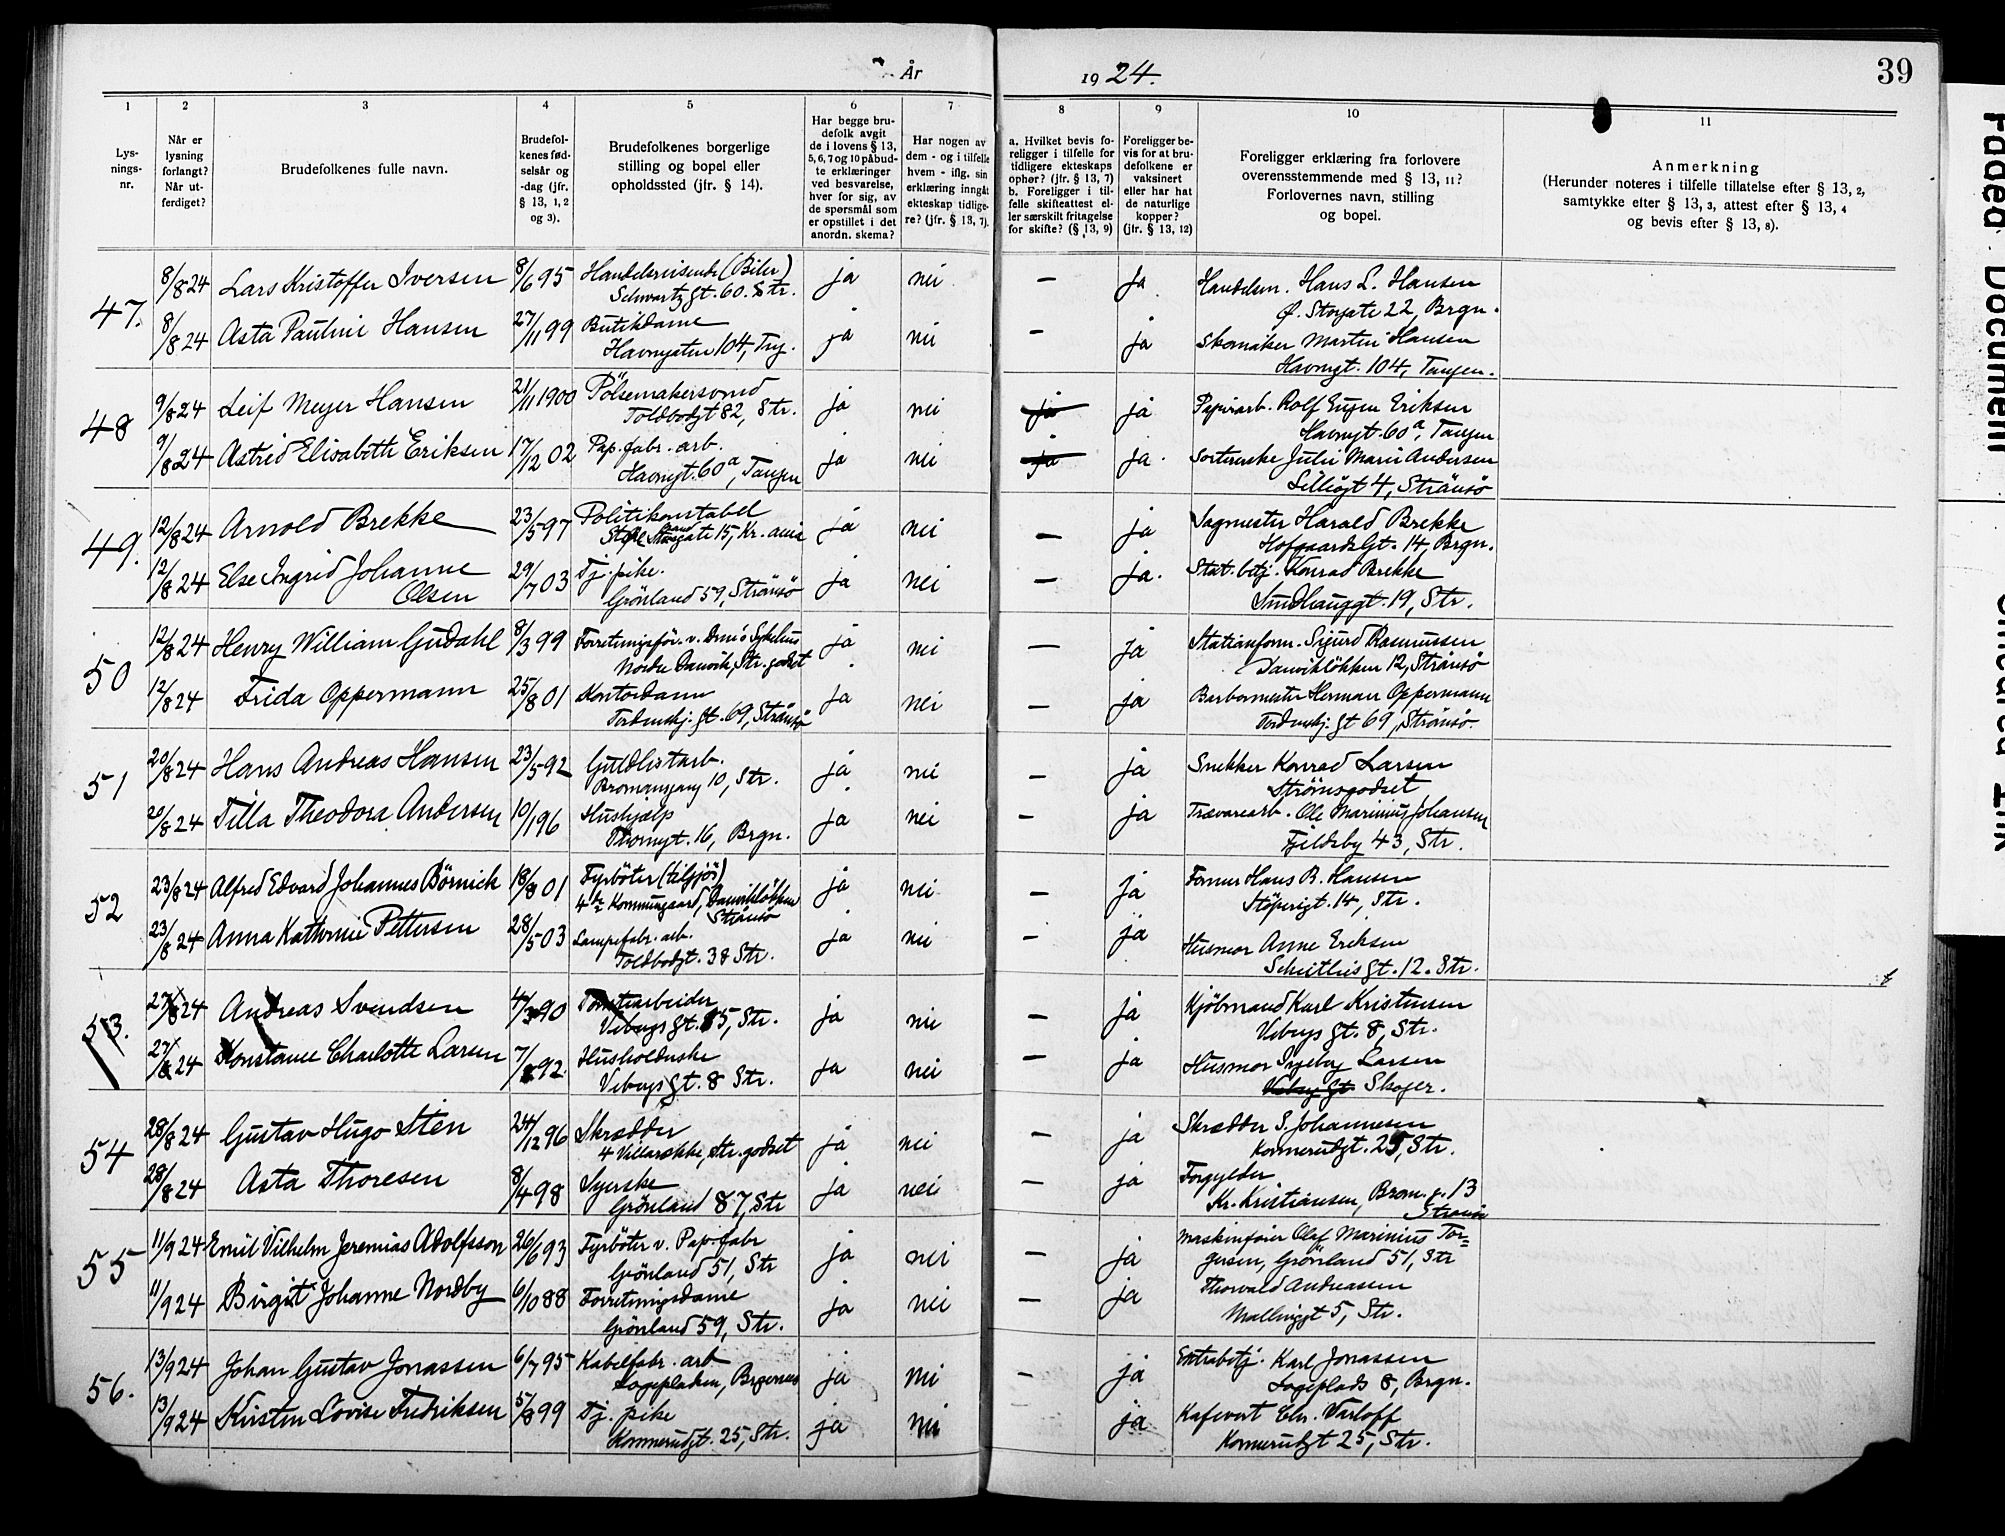 År
1924.
39
1
2
3
4
5
6
7
8
9
10
11
Lys-
nings-
nr.
Når er
lysning
forlangt?
Når ut-
ferdiget?
Brudefolkenes fulle navn.
Brudefol-
kenes fød-
selsår og
-dag (jfr.
§ 13, 1, 2
og 3).
Brudefolkenes borgerlige
stilling og bopel eller
opholdssted (jfr. § 14).
Har begge bru-
defolk avgit
de i lovens § 13,
5, 6, 7 og 10 påbud-
te erklæringer
ved besvarelse,
hver for sig, av
de spørsmål som
er opstillet i det
anordn. skema?
Har nogen av
dem - og i tilfelle
hvem - iflg. sin
erklæring inngåt
ekteskap tidlige-
re? (jfr. § 13, 7).
a. Hvilket bevis fo-
religger i tilfelle for
tidligere ekteskaps
ophør? (jfr. § 13, 7)
b. Foreligger i til-
felle skifteattest el-
ler særskilt fritagelse
for skifte? (§ 13, 9)
Foreligger be-
vis for at bru-
defolkene er
vaksinert
eller har hat
de naturlige
kopper?
(jfr. § 13, 12)
Foreligger erklæring fra forlovere
overensstemmende med § 13, 11?
Forlovernes navn, stilling
og bopel.
Anmerkning
(Herunder noteres i tilfelle tillatelse efter § 13, 2,
samtykke efter § 13, 3, attest efter § 13, 4
og bevis efter § 13, 8).
47.
8/8 24 Lars Kristoffer Iversen 8/6 95 Handelsreisende (Biler) ja nei — ja Handelsm. Hans L. Hansen
Schwartz gt. 60. Str. Ø. Storgate 22, Brgn.
8/8 24 Asta Pauline Hansen 27/11 99 Butikdame ja nei — ja Skomaker Martin Hansen
Havnegaten 104, Tng. Havnegt. 104, Tangen.
48
9/8 24 Leif Meyer Hansen 21/11 1900 Pölsemakersvend ja nei ja ja Papirarb. Rolf Eugen Eriksen
Toldbodgt 82, Str. Havnegt. 60a, Tangen
9/8 24 Astrid Elisabeth Eriksen 17/12 02 Pap. fabr. arb. ja nei ja ja. Sorterske Julie Marie Andersen
Havnegt. 60a, Tangen Lilliegt 4, Strömsö
49.
12/8 24 Arnold Brekke 23/5 97 Politikonstabel ja nei — ja Sagmester Harald Brekke
Storgate 15, Kr. ania Hofgaardsgt. 14, Brgn.
12/8 24 Else Ingrid Johanne 29/7 03 Tj. pike. ja nei — ja. Stat. betj. Konrad Brekke
Olsen Grönland 59, Strömsö Sundhauggt. 19, Str.
50
12/8 24 Henry William Gudahl 8/3 99 Forretningsför. v. Drm's Sykehus ja nei — ja Stationsform. Sigurd Rasmussen
Nordre Danvik, Str. godset Danvikløkken 12, Strömsö
12/8 24 Frida Oppermann 25/8 01 Kontordame ja nei — ja Barbermester Herman Oppermann
Tordenskj. gt. 69, Strömsö Tordenskj. gt 69, Strömsö.
51
20/8 24 Hans Andreas Hansen 23/5 92 Guldlistarb. ja nei — ja Snekker Konrad Larsen
Bromansgang 10, Str. Strömsgodset
20/8 24 Tilla Theodora Andersen 10/1 96 Hushjælp ja nei — ja Trævarearb. Ole Marinius Johansen
Thornegt. 16, Brgn. Fjeldsby 43, Str.
52
23/8 24 Alfred Edvard Johannes Börnick 18/8 01 Fyrböter (tilsjös) ja nei — ja Former Hans B. Hansen
4de Kommunegaard, Danvikløkken Støperigt. 14, Str.
Strömsö
23/8 24 Anna Kathrine Pettersen 28/5 03 Lampefabr. arb. ja nei — ja Husmor Anne Eriksen
Toldbodgt. 38 Str. Schultzis gt. 12. Str.
53.
27/8 24 Andreas Svendsen 4/3 90 Tomtearbeider ja nei — ja Kjöbmand Karl Kristensen
Vibergs gt. 15, Str. Vibergs gt. 8, Str.
27/8 24 Konstance Charlotte Larsen 7/8 92. Husholderske ja nei — ja Husmor Ingeborg Larsen
Vibergs gt. 8 Str. Viberg gt Skoger.
54
28/8 24 Gustav Hugo Sten 24/12 96 Skrædder ja nei — ja Skrædder S. Johannesen
4 Villarække, Str. godset Konnerudgt. 25, Str.
28/8 24 Asta Thoresen 8/4 98 Syerske ja nei — ja Forgylder
Grönland 87, Str Kr. Kristiansen, Brom. g. 13
Strömsö
55
11/9 24 Emil Vilhelm Jeremias Adolfsson 26/6 93 Fyrböter v. Pap. fabr ja nei — ja Maskinfører Olaf Marinius Tor=
Grönland 51, Str gersen, Grönland 51, Str
11/9 24 Birgit Johanne Nordby 6/10 88 Forretningsdame ja nei — ja Thorvald Andreassen
Grönland 59, Str. Mallinggt 5, Str.
56.
13/9 24 Johan Gustav Jonassen 6/7 95 Kabelfabr. arb ja nei — ja Extrabetj. Karl Jonassen
Logepladsen, Bragernes Logeplads 8, Brgn.
13/9 24 Kirsten Lovise Fredriksen 5/8 99 Tj. pike ja nei ja Kafevert Chr. Varloff
Konnerudgt. 25, Str. Konnerudgt 25, Str.
Faded Document